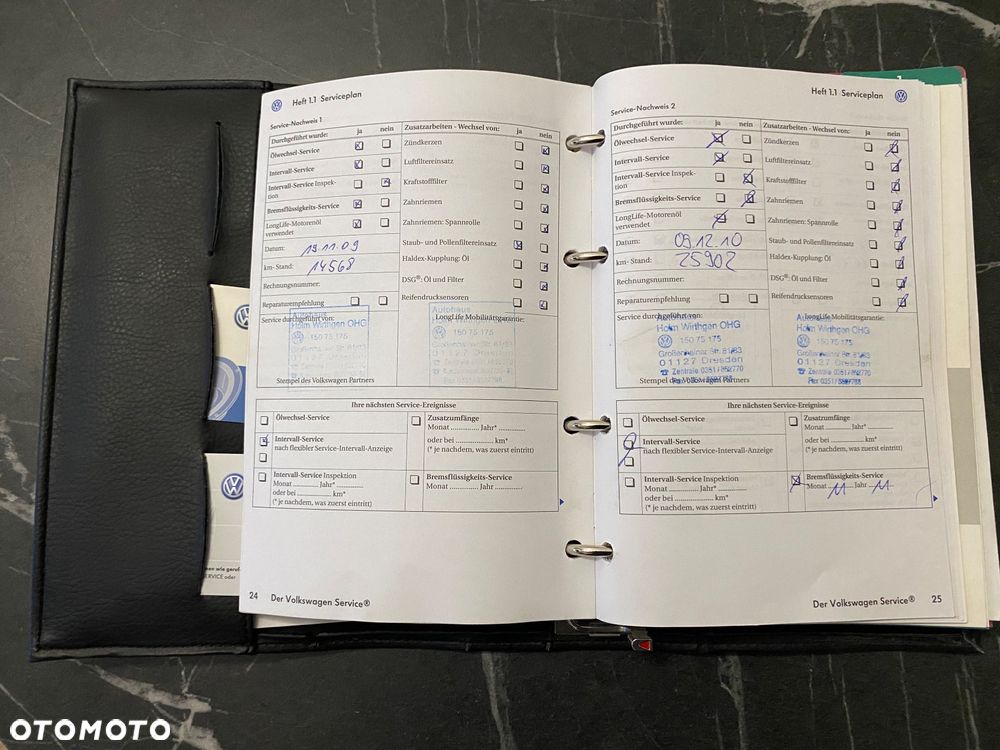 Heft 1.1 Serviceplan
Service-Nachweis 1
Durchgeführt wurde: ja nein
Ölwechsel-Service
Intervall-Service
Intervall-Service Inspek-
tion
Bremsflüssigkeits-Service
LongLife-Motorenöl
verwendet
Datum: 19.11.09
km-Stand: 14568
Rechnungsnummer:
Reparaturempfehlung
Zusatzarbeiten - Wechsel von: ja nein
Zündkerzen
Luftfiltereinsatz
Kraftstofffilter
Zahnriemen
Zahnriemen: Spannrolle
Staub- und Pollenfiltereinsatz
Haldex-Kupplung: Öl
DSG®: Öl und Filter
Reifendrucksensoren
Service durchgeführt von:
Autohaus
Holm Wirthgen OHG
150 75 175
Großenhainer Str. 81/83
01127 Dresden
Stempel des Volkswagen Partners
LongLife Mobilitätsgarantie:
Autohaus
Holm Wirthgen OHG
150 75 175
Ihre nächsten Service-Ereignisse
Ölwechsel-Service
Intervall-Service
nach flexibler Service-Intervall-Anzeige
Intervall-Service Inspektion
Monat ............ Jahr* ............
oder bei ............ km*
(* je nachdem, was zuerst eintritt)
Zusatzumfänge
Monat ............ Jahr* ............
oder bei ............ km*
(* je nachdem, was zuerst eintritt)
Bremsflüssigkeits-Service
Monat ............ Jahr ............
24 Der Volkswagen Service®
Heft 1.1 Serviceplan
Service-Nachweis 2
Durchgeführt wurde: ja nein
Ölwechsel-Service
Intervall-Service
Intervall-Service Inspek-
tion
Bremsflüssigkeits-Service
LongLife-Motorenöl
verwendet
Datum: 09.12.10
km-Stand: 25902
Rechnungsnummer:
Reparaturempfehlung
Zusatzarbeiten - Wechsel von: ja nein
Zündkerzen
Luftfiltereinsatz
Kraftstofffilter
Zahnriemen
Zahnriemen: Spannrolle
Staub- und Pollenfiltereinsatz
Haldex-Kupplung: Öl
DSG®: Öl und Filter
Reifendrucksensoren
Service durchgeführt von:
Holm Wirthgen OHG
150 75 175
Großenhainer Str. 81/83
01127 Dresden
Stempel des Volkswagen Partners
LongLife Mobilitätsgarantie:
Holm Wirthgen OHG
150 75 175
Großenhainer Str. 81/83
01127 Dresden
Ihre nächsten Service-Ereignisse
Ölwechsel-Service
Intervall-Service
nach flexibler Service-Intervall-Anzeige
Intervall-Service Inspektion
Monat ............ Jahr* ............
oder bei ............ km*
(* je nachdem, was zuerst eintritt)
Zusatzumfänge
Monat ............ Jahr* ............
oder bei ............ km*
(* je nachdem, was zuerst eintritt)
Bremsflüssigkeits-Service
Monat 11 Jahr 11
Der Volkswagen Service® 25
OTOMOTO